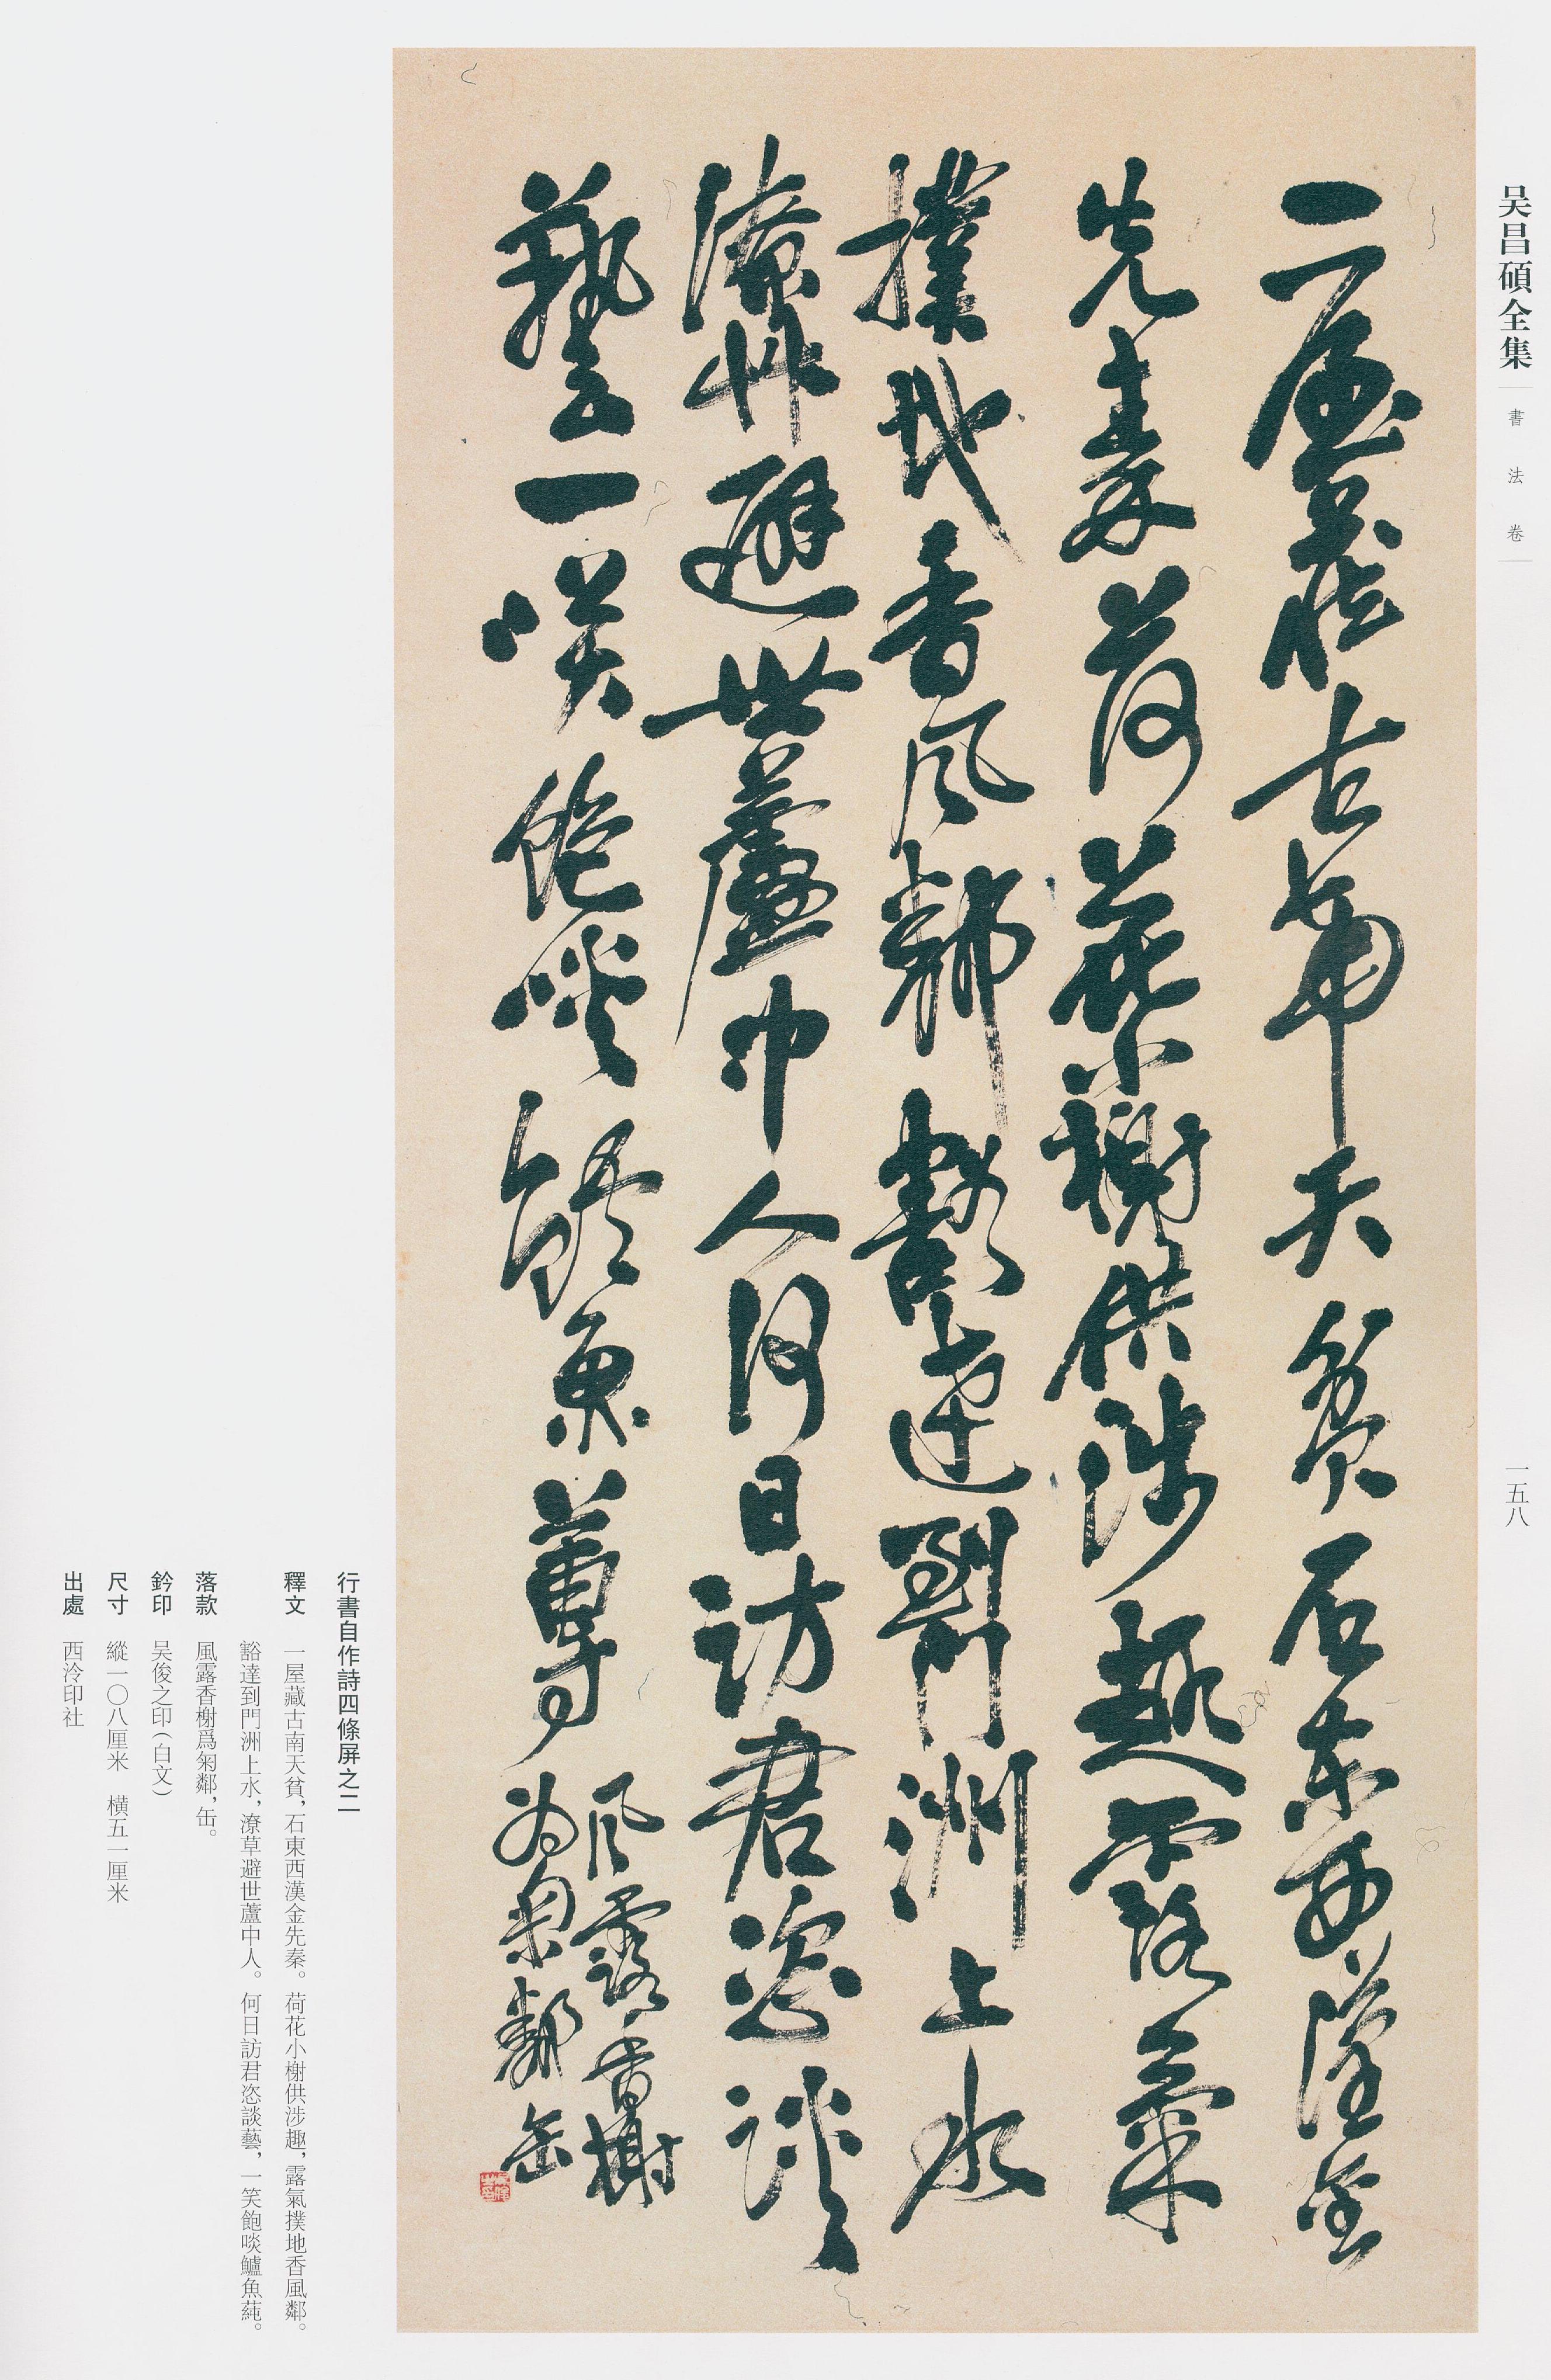 吴昌碩全集
書法卷
一五八
一屋藏古南天貧石東西漢金
先秦荷花小榭供涉趣露氣
撲地香風鄰豁達到門洲上水
潦艸避世蘆中人何日訪君恣談
藝一咲飽啖鱸魚蓴
風露香榭
為匊鄰缶
行書自作詩四條屏之二
釋文 一屋藏古南天貧，石東西漢金先秦。荷花小榭供涉趣，露氣撲地香風鄰。
豁達到門洲上水，潦草避世蘆中人。何日訪君恣談藝，一笑飽啖鱸魚蒓。
落款 風露香榭爲匊鄰，缶。
鈐印 吴俊之印（白文）
尺寸 縱一〇八厘米 横五一厘米
出處 西泠印社